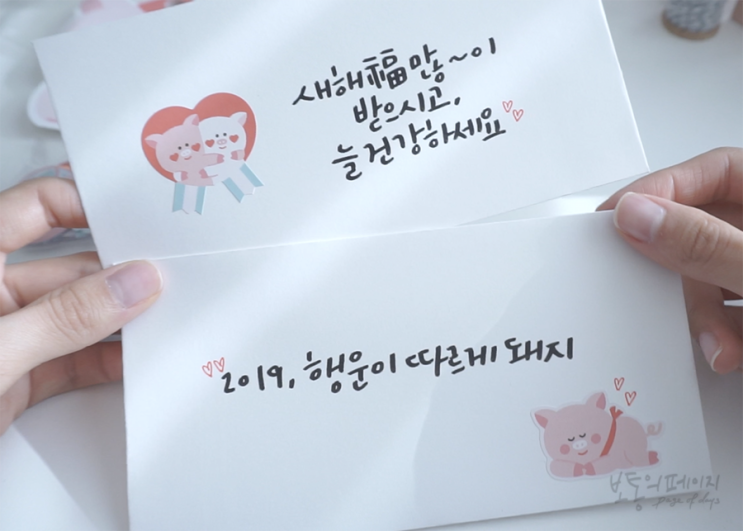 새해福많~이
받으시고,
늘건강하세요
2019, 행운이 따르게 돼지
보통의페이지